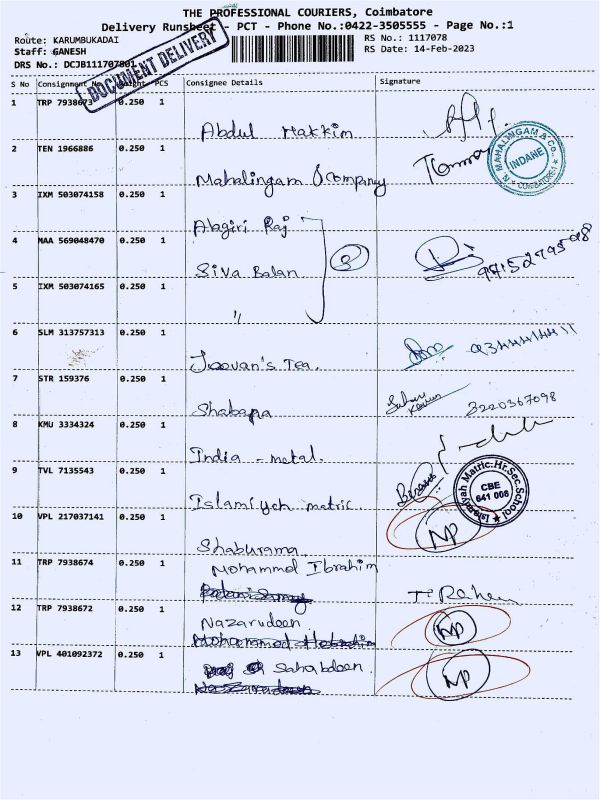 THE PROFESSIONAL COURIERS, Coimbatore
Delivery Runsheet - PCT - Phone No.:0422-3505555 - Page No.:1
Route: KARUMBUKADAI
RS No.: 1117078
Staff: GANESH
RS Date: 14-Feb-2023
DRS No.: DCJB111707801
DOCUMENT DELIVERY
S No Consignment No Weight PCS Consignee Details Signature
1 TRP 7938673 0.250 1
Abdul Hakkim
2 TEN 1966886 0.250 1
Mahalingam & Company
N. MAHALINGAM & Co.,
INDANE
COIMBATORE-1
3 IXM 503074158 0.250 1
Alagiri Raj
4 MAA 569048470 0.250 1
Siva Balan
3
5 IXM 503074165 0.250 1
"
6 SLM 313757313 0.250 1
Joovan's Tea.
7 STR 159376 0.250 1
Shabana
8 KMU 3334324 0.250 1
India - metal.
9 TVL 7135543 0.250 1
Islamiyah matric.
Islamiyah Matric.Hr.Sec.School
CBE
641 008
10 VPL 217037141 0.250 1
Shaburama
NP
11 TRP 7938674 0.250 1
Mohammed Ibrahim
12 TRP 7938672 0.250 1
Nazarudeen
NP
13 VPL 401092372 0.250 1
Sahabdeen
NP